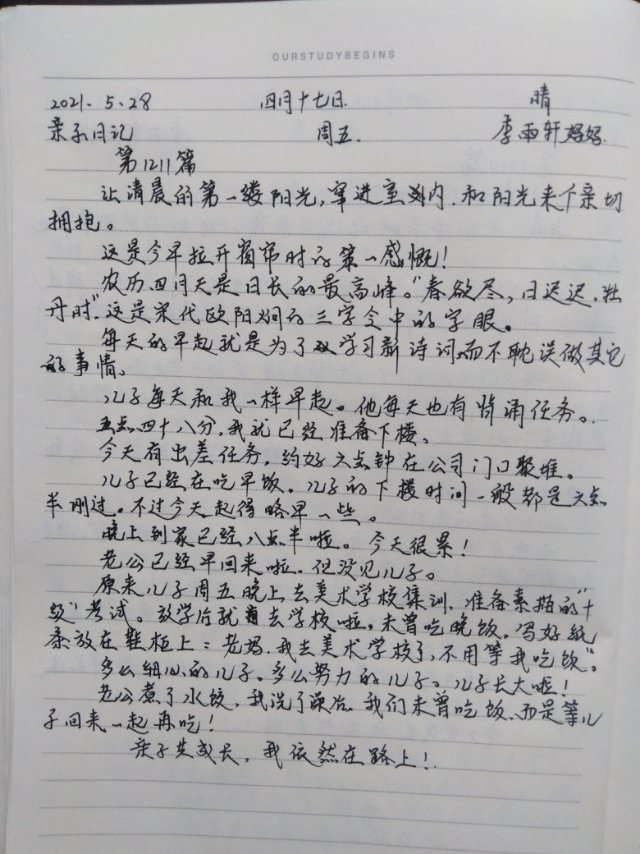 OURSTUDYBEGINS
2021.5.28 四月十七日. 晴
亲子日记 周五. 李雨轩妈妈.
第1211篇
让清晨的第一缕阳光,穿进室内.和阳光来个亲切
拥抱。
这是今早拉开窗帘时的第一感慨!
农历四月天是日长的最高峰。“春欲尽,日迟迟,牡
丹时”这是宋代欧阳炯的三字令中的字眼。
每天的早起就是为了学习新诗词而不耽误做其它
的事情。
儿子每天和我一样早起。他每天也有背诵任务。
五点四十八分,我就已经准备下楼。
今天有出差任务,约好六点钟在公司门口聚堆。
儿子已经在吃早饭。儿子的下楼时间一般都是六点
半刚过。不过今天起得略早一些。
晚上到家已经八点半啦。今天很累!
老公已经早回来啦,但没见儿子。
原来儿子周五晚上去美术学校集训,准备素描的“十
级”考试。放学后就去学校啦,未曾吃晚饭,写好纸
条放在鞋柜上:老妈,我去美术学校了,不用等我吃饭”。
多么细心的儿子。多么努力的儿子。儿子长大啦!
老公煮了水饺,我洗了澡后.我们未曾吃饭.而是等儿
子回来一起再吃!
亲子共成长,我依然在路上!